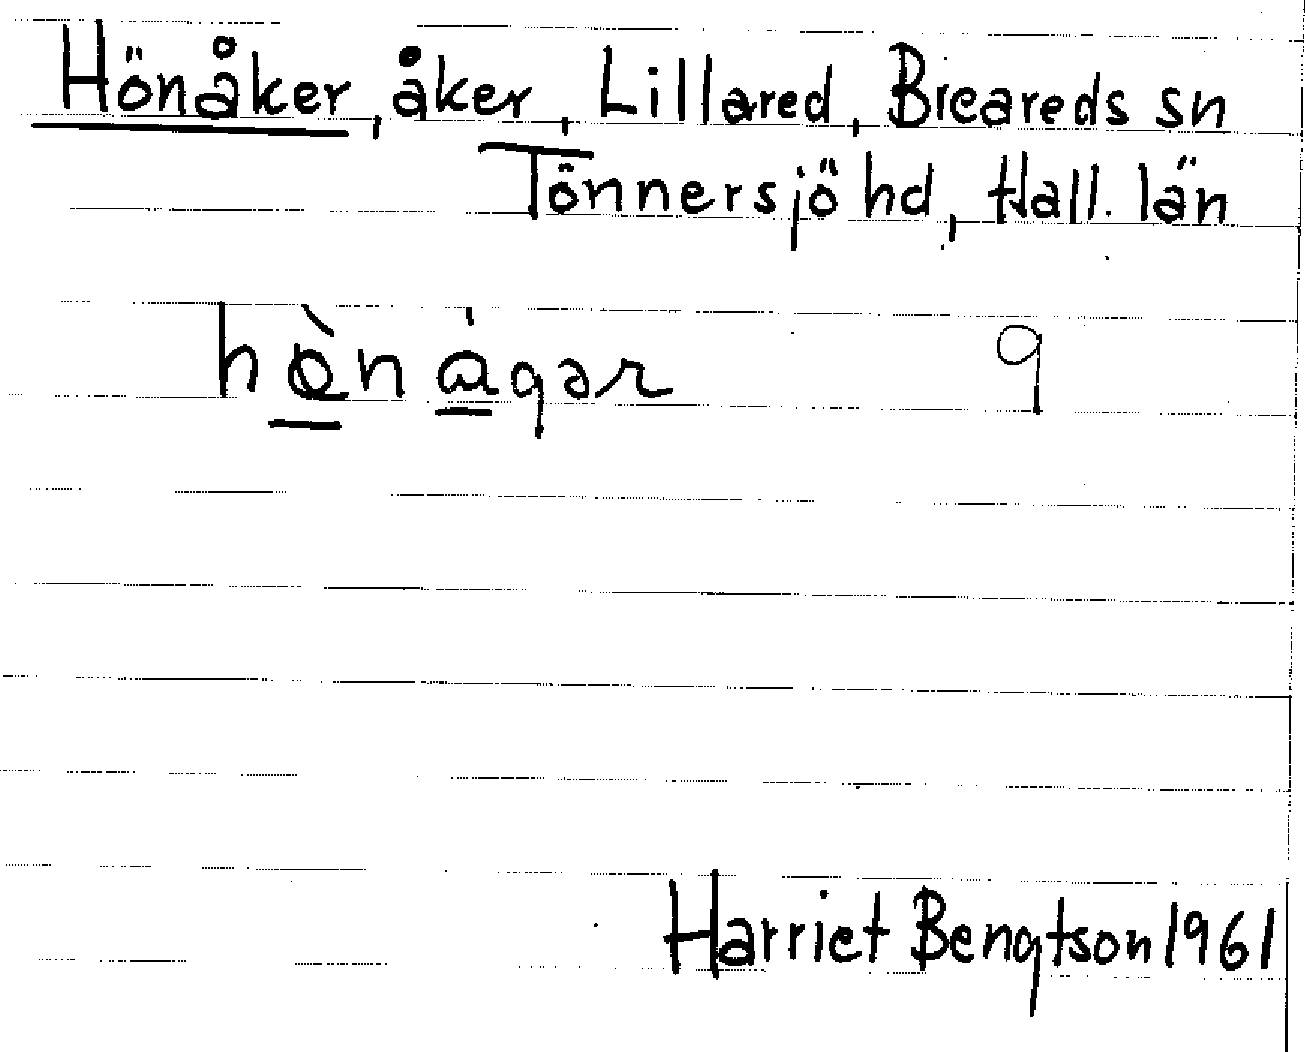 Hönåker, åker, Lillared, Breareds sn
Tönnersjö hd, Hall. län
hǫ̀nágər 9
Harriet Bengtson 1961